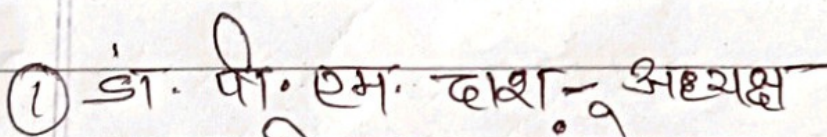 ① डॉ. पी. एम. दाश - अध्यक्ष